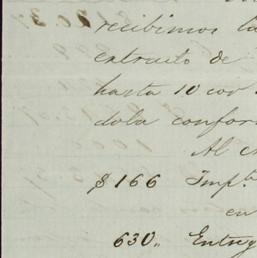 recibimos la
extracto de
hasta 10 cor
dola confor
Al
$166 Imp.ta
en
630,, Entreg